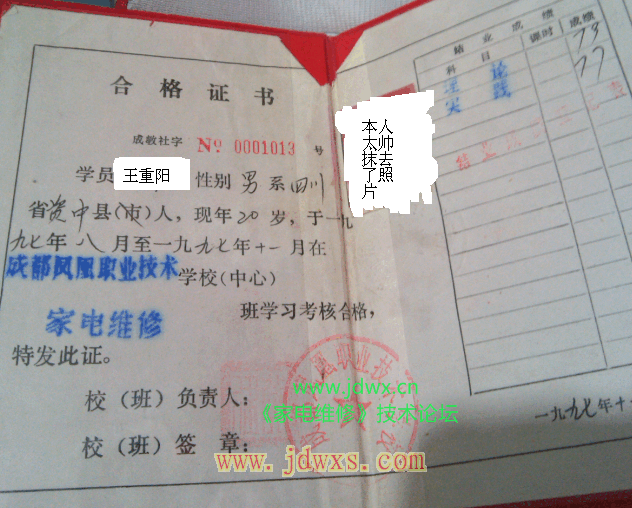 合格证书
成教社字 № 0001013 号
学员 王重阳 性别 男 系 四川
省资中县(市)人，现年20岁，于一九
九七年八月至一九九七年十一月在
成都凤凰职业技术学校(中心)
家电维修 班学习考核合格，
特发此证。
校（班）负责人：
校（班）签 章：
本人
太帅
抹去
了照
片
结业成绩
科目 课时 成绩
论 79
实践 77
一九九七年十一
www.jdwx.cn
《家电维修》技术论坛
www.jdwxs.com